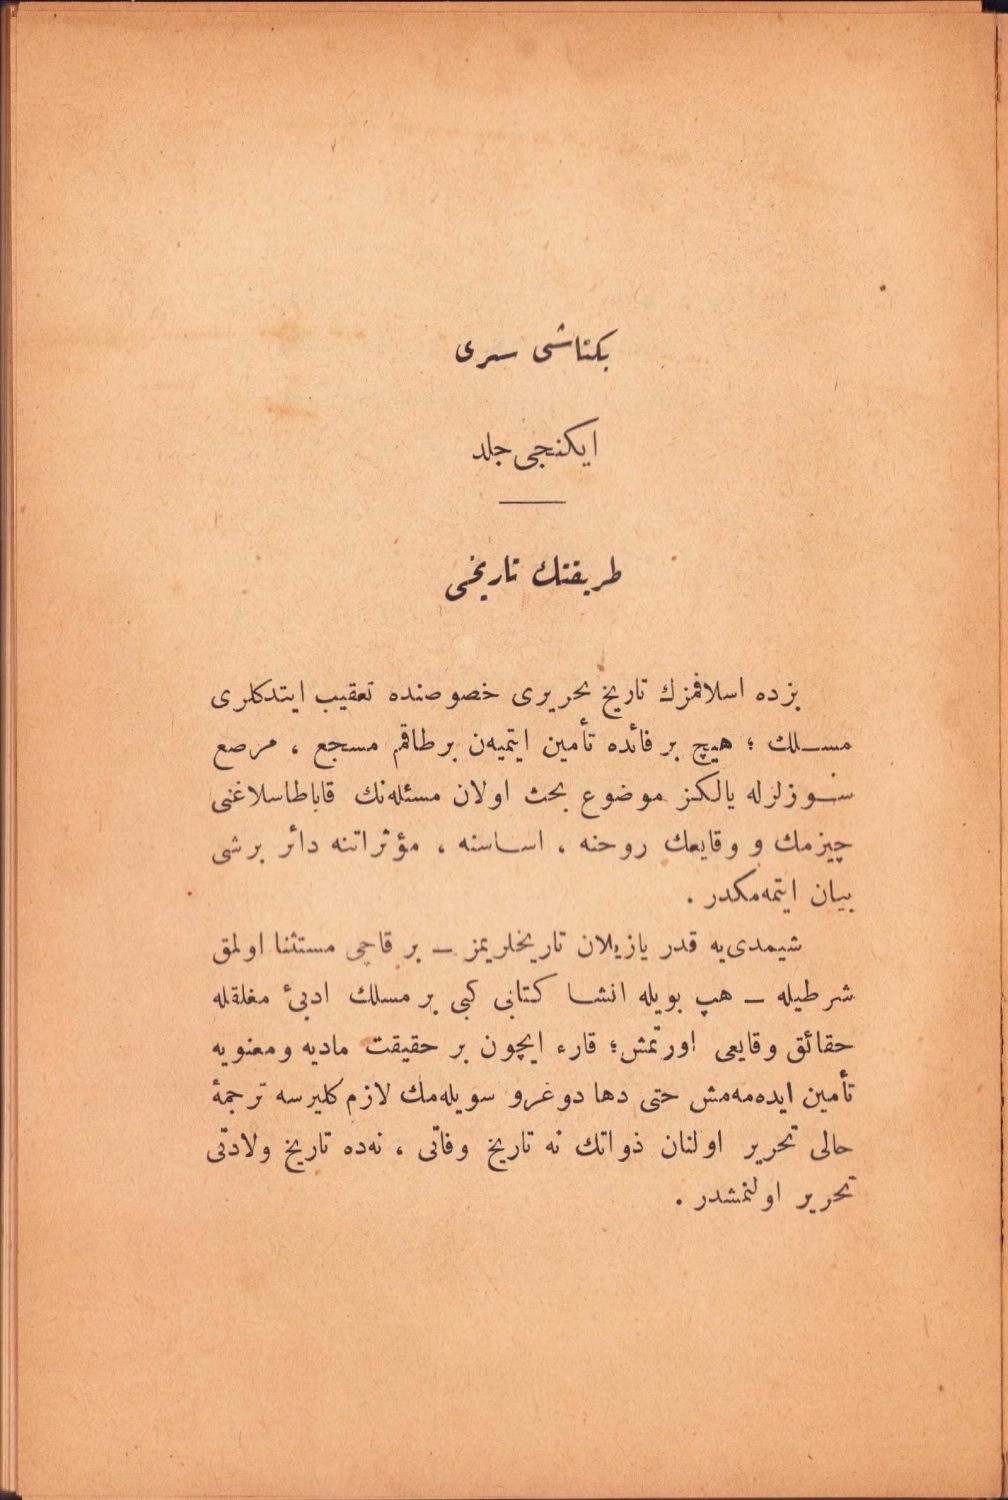 بكتاشی سری
ایكنجی جلد
طریقتك تاریخی
بزده اسلافمزك تاریخ تحریری خصوصنده تعقیب ایتدكلری
مسـلك ؛ هیچ بر فائده تأمین ایتمیه‌ن بر طاقم مسجع ، مرصع
سـوزلرله یالكز موضوع بحث اولان مسئله‌نك قاباطاسلاغنی
چیزمك و وقایعك روحنه ، اسـاسنه ، مؤثراتنه دائر بر شی
بیان ایتمه‌مكدر .
شیمدی‌یه قدر یازیلان تاریخلریمز ــ بر قاچی مستثنا اولمق
شرطیله ــ هپ بویله انشـا كتابی كبی بر مسلك ادبیٔ مغلقله
حقائق وقایعی اورتمش؛ قارء ایچون بر حقیقت مادیه ومعنویه
تأمین ایده‌مه‌مش حتی دها دوغرو سویله‌مك لازم كلیرسه ترجمهٔ
حالی تحریر اولنان ذواتك نه تاریخ وفاتی ، نه‌ده تاریخ ولادتی
تحریر اولنمشدر .